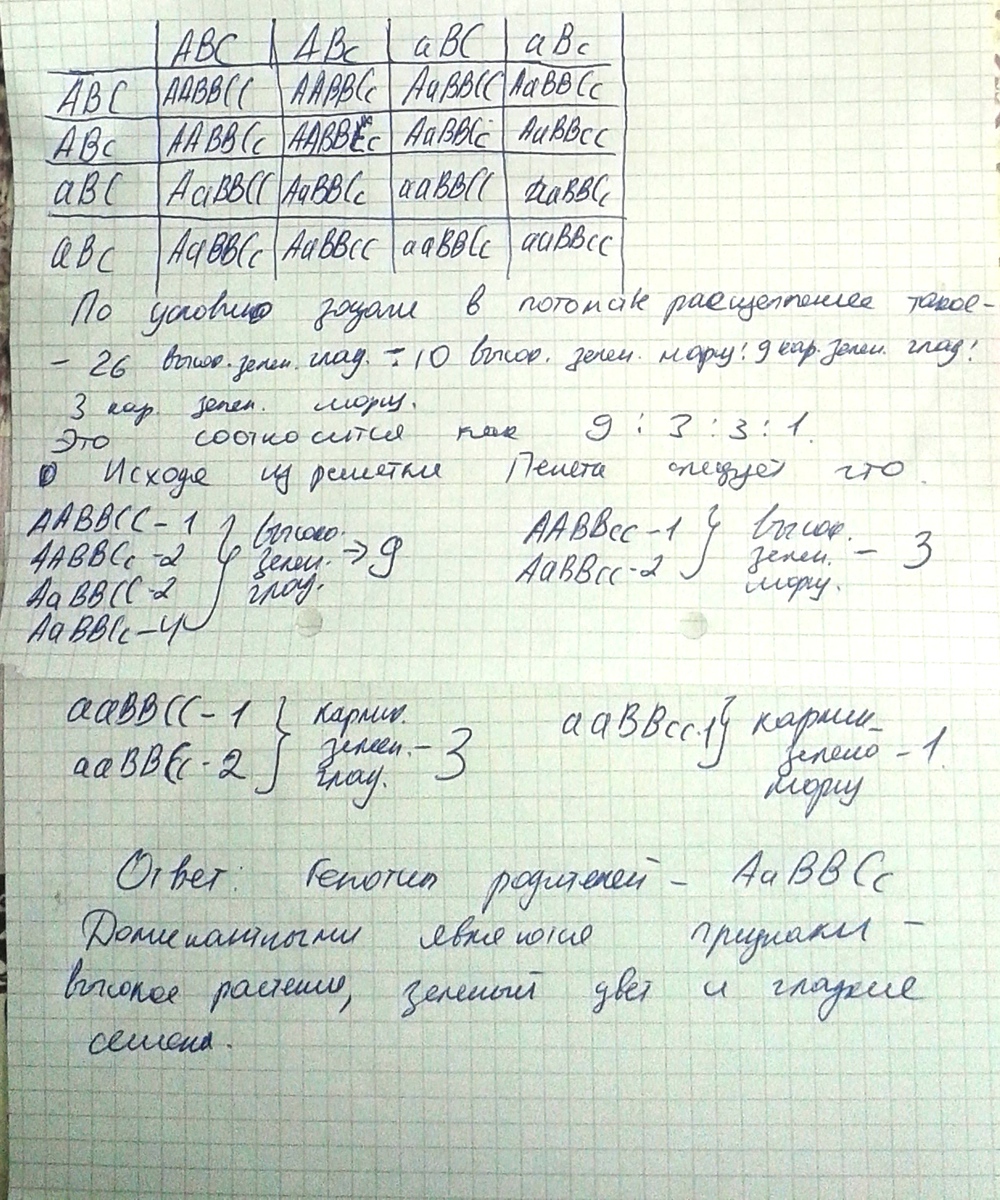 ABC ABc aBC aBc
ABC AABBCC AABBCc AaBBCC AaBBCc
ABc AABBCc AABBcc AaBBCc AaBBcc
aBC AaBBCC AaBBCc aaBBCC aaBBCc
aBc AaBBCc AaBBcc aaBBCc aaBBcc
По условию задачи в потомстве расщепление такое -
- 26 высок. зелен. глад. : 10 высок. зелен. морщ : 9 кар. зелен. глад :
3 кар. зелен. морщ.
Это соотносится как 9 : 3 : 3 : 1.
Исходя из решетки Пенета следует что
AABBCC - 1
AABBCc - 2
AaBBCC - 2
AaBBCc - 4
} высоко. зелен. глад. → 9
AABBcc - 1
AaBBcc - 2
} высок. зелен. морщ. - 3
aaBBCC - 1
aaBBCc - 2
} карлик. зелен. глад. - 3
aaBBcc - 1 } карлик зелено морщ - 1.
Ответ: Генотип родителей - AaBBCc
Доминантными являются признаки -
высокое растение, зеленый цвет и гладкие
семена.